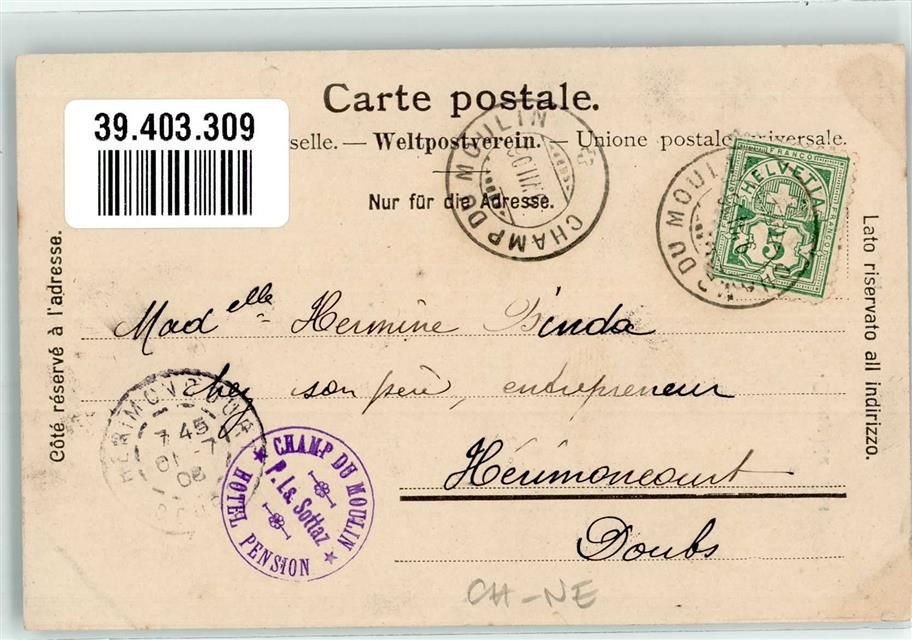 Carte postale.
39.403.309
selle. — Weltpostverein. — Unione postale universale.
Nur für die Adresse.
CHAMP DU MOULIN
DU MOULIN
FRANCO
HELVETIA
FRANCO
5
Côté réservé à l'adresse.
Lato riservato all indirizzo.
Madelle Hermine Binda
chez son père, entrepreneur
Hérimoncourt
Doubs
HÉRIMONCOURT
7 45
01 -7
CHAMP DU MOULIN
P. Ls. Sottaz
HOTEL PENSION
CH-NE